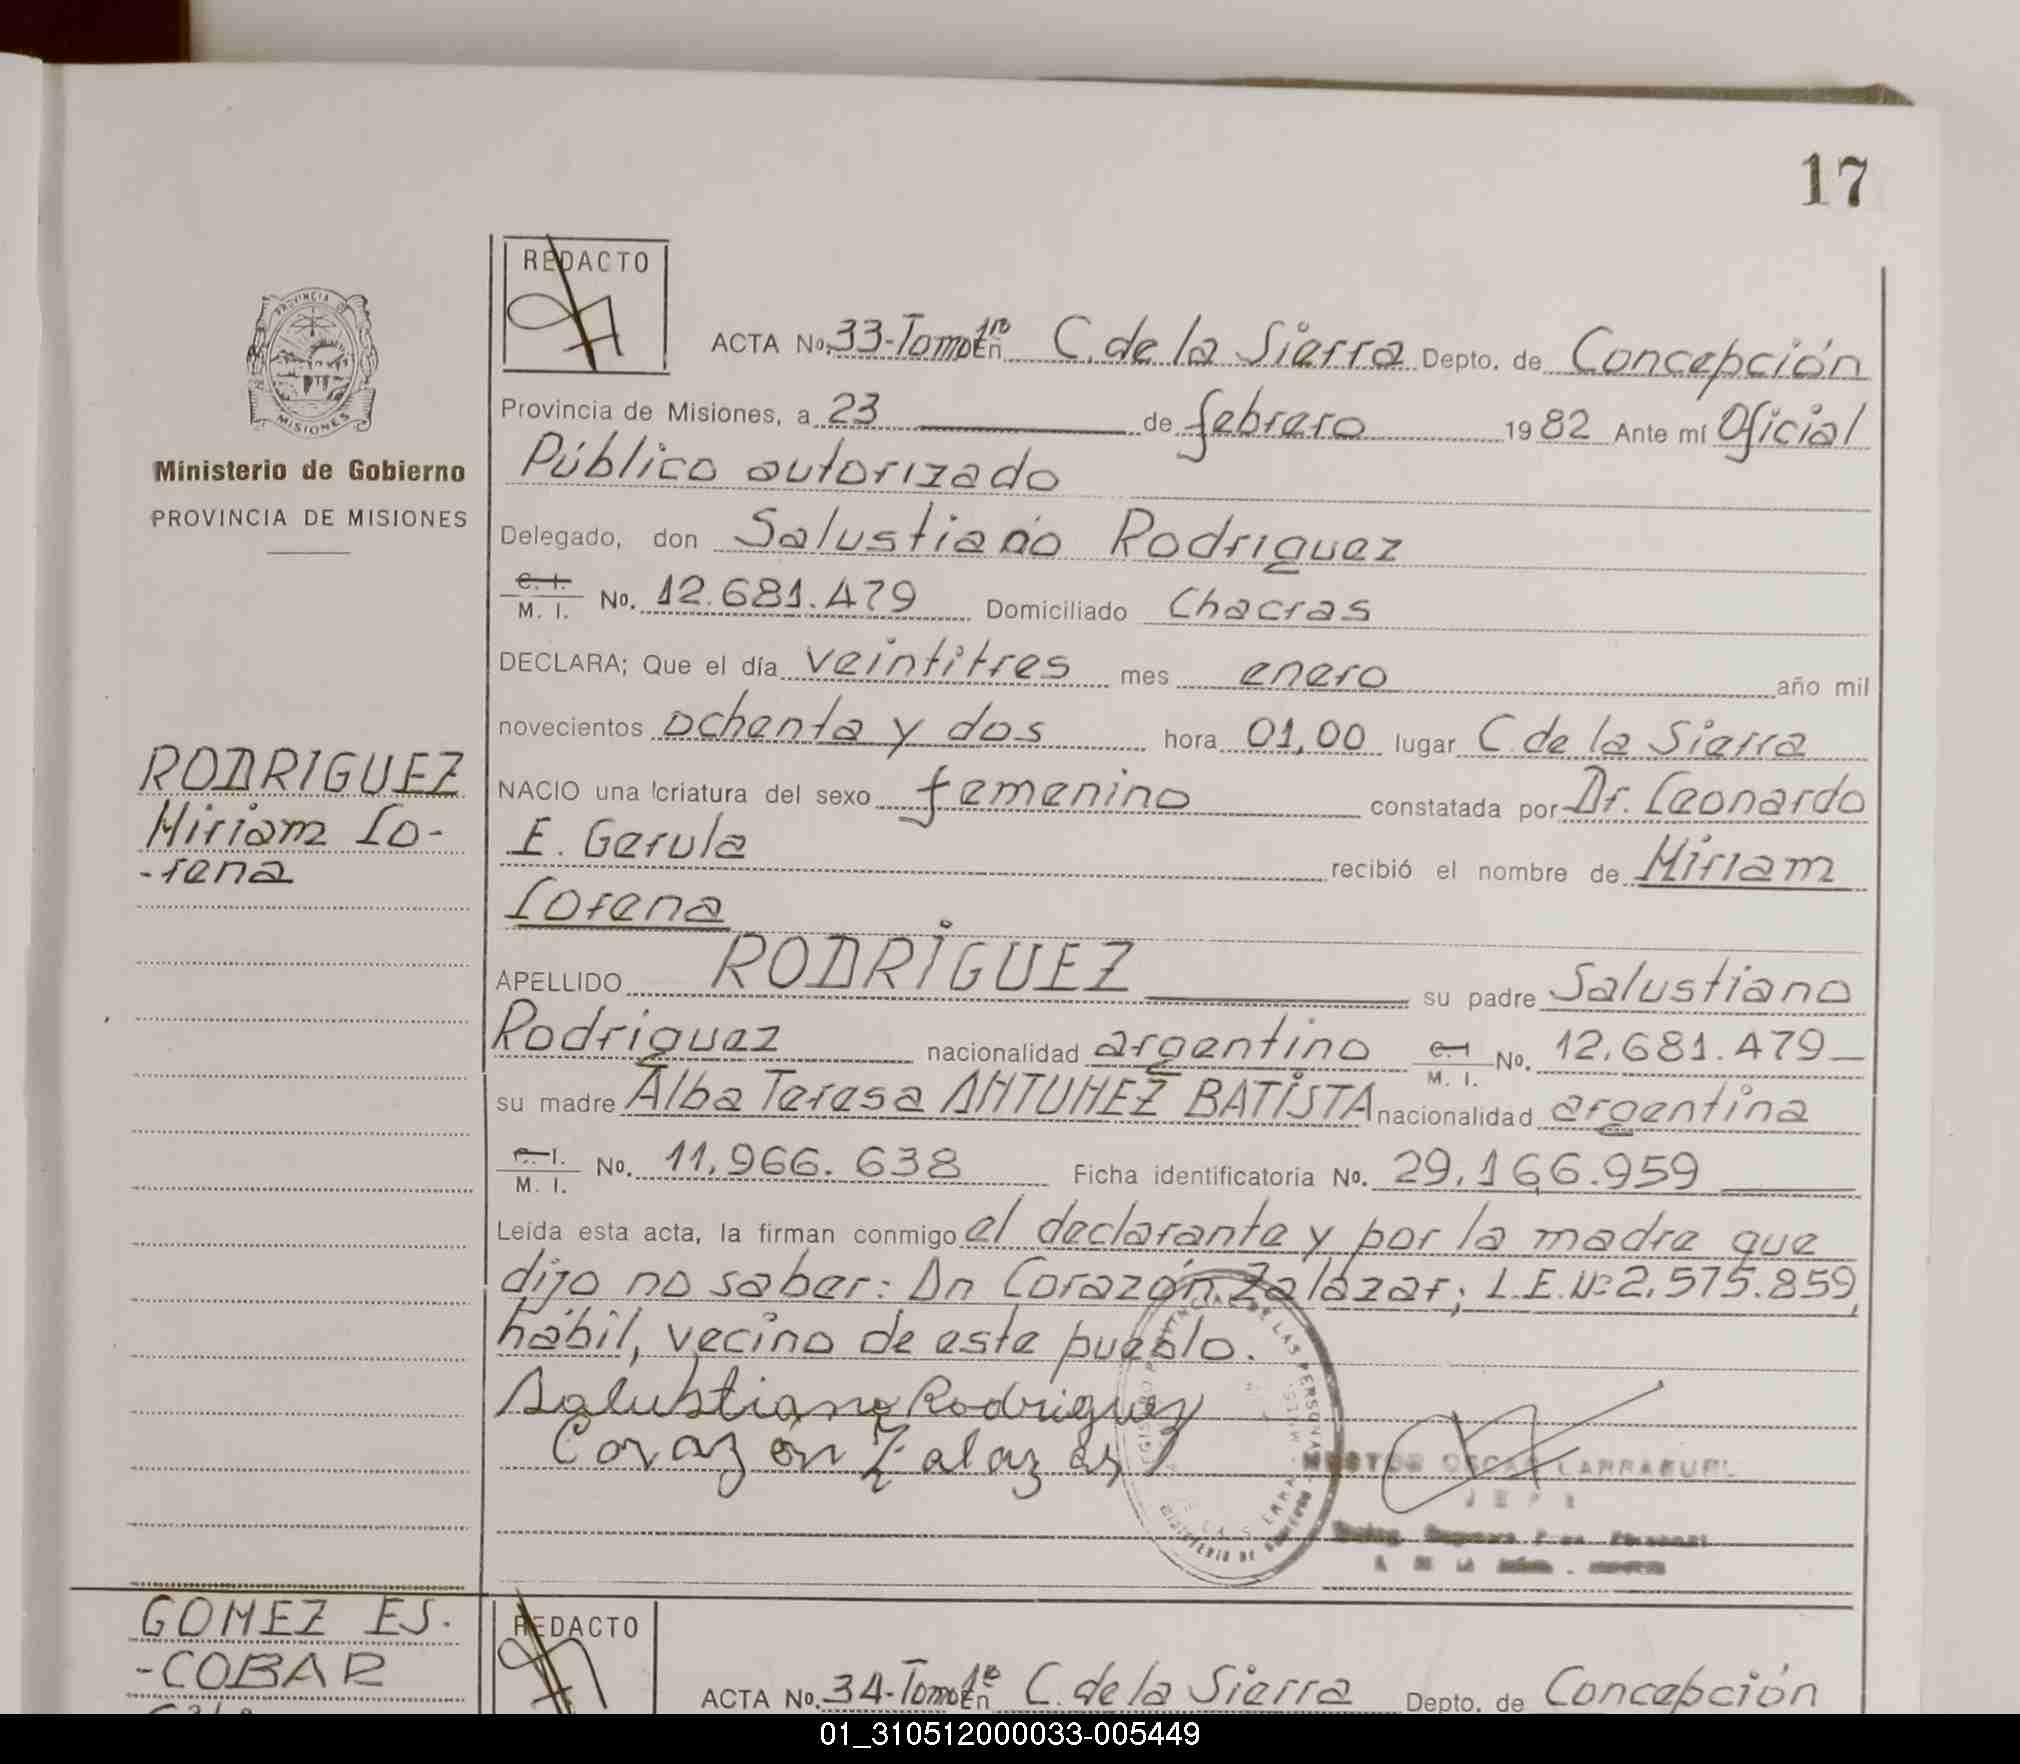 17
REDACTO
ACTA No. 33-Tomo 1ro En C. de la Sierra Depto. de Concepción
Provincia de Misiones, a 23 de febrero 1982 Ante mí Oficial
Público autorizado
PROVINCIA DE MISIONES
Ministerio de Gobierno
PROVINCIA DE MISIONES
Delegado, don Salustiano Rodriguez
C. I. M. I. No. 12.681.479 Domiciliado Chacras
DECLARA; Que el día veintitres mes enero año mil
novecientos ochenta y dos hora 01,00 lugar C. de la Sierra
RODRIGUEZ
Miriam Lo-
-rena
NACIO una criatura del sexo femenino constatada por Dr. Leonardo
E. Gerula recibió el nombre de Miriam
Lorena
APELLIDO RODRIGUEZ su padre Salustiano
Rodriguez nacionalidad argentino C. I. M. I. No. 12.681.479
su madre Alba Teresa ANTUNEZ BATISTA nacionalidad argentina
C. I. M. I. No. 11.966.638 Ficha identificatoria No. 29.166.959
Leída esta acta, la firman conmigo el declarante y por la madre que
dijo no saber: Dn Corazón Zalazar; L.E.Nº 2.575.859,
hábil, vecino de este pueblo.
Salustiano Rodriguez
Corazón Zalazar
OSCAR
JEFE
GOMEZ ES-
-COBAR
REDACTO
ACTA No. 34-Tomo 1º En C. de la Sierra Depto. de Concepción
01_310512000033-005449